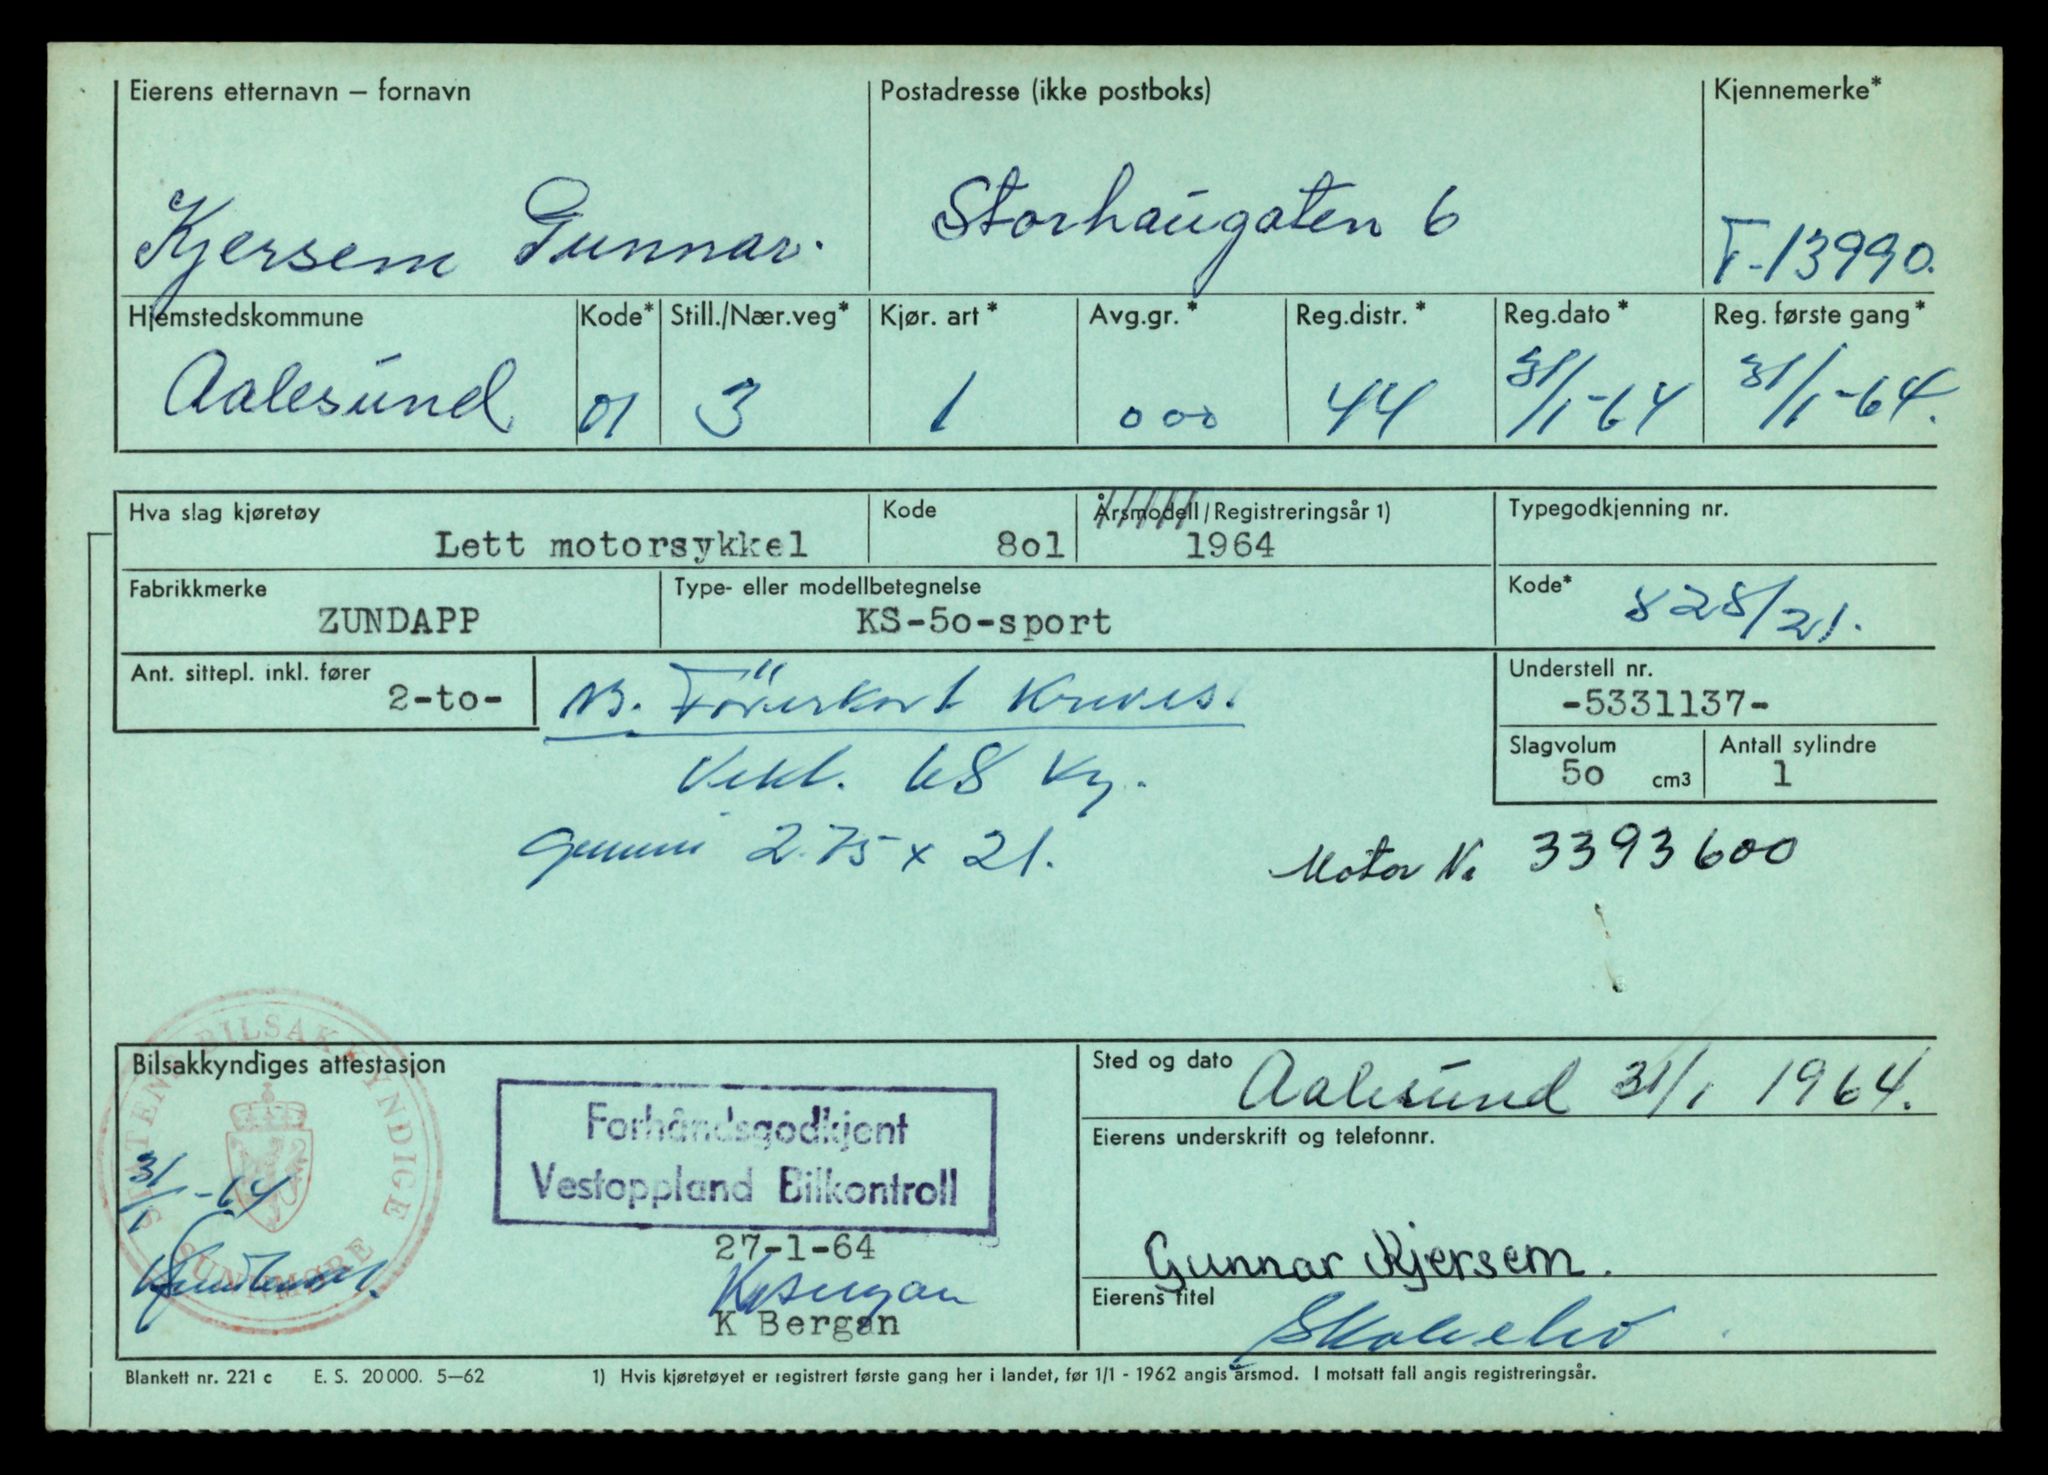 Eierens etternavn – fornavn
Kjersem Gunnar.
Postadresse (ikke postboks)
Storhaugaten 6
Kjennemerke*
T-13990.
Hjemstedskommune
Aalesund
Kode*
01
Still./Nær.veg*
3
Kjør. art*
1
Avg.gr.*
000
Reg.distr.*
44
Reg.dato*
31/1-64
Reg. første gang*
31/1-64.
Hva slag kjøretøy
Lett motorsykkel
Kode
8o1
Årsmodell/Registreringsår 1)
1964
Typegodkjenning nr.
Fabrikkmerke
ZUNDAPP
Type- eller modellbetegnelse
KS-5o-sport
Kode*
828/21.
Ant. sittepl. inkl. fører
2-to-
NB. Förerkort Kreves.
Understell nr.
-5331137-
Vekt. 68 kg.
Slagvolum
5o cm3
Antall sylindre
1
Gummi 2.75 x 21.
Motor Nr 3393600
Bilsakkyndiges attestasjon
STATENS BILSAKKYNDIGE
SUNNMØRE
31/1-64
Forhåndsgodkjent
Vestoppland Bilkontroll
27-1-64
K Bergan
K Bergan
Sted og dato
Aalesund 31/1 1964.
Eierens underskrift og telefonnr.
Gunnar Kjersem.
Eierens titel
Skoleelev
Blankett nr. 221 c E. S. 20000. 5–62
1) Hvis kjøretøyet er registrert første gang her i landet, før 1/1 - 1962 angis årsmod. I motsatt fall angis registreringsår.